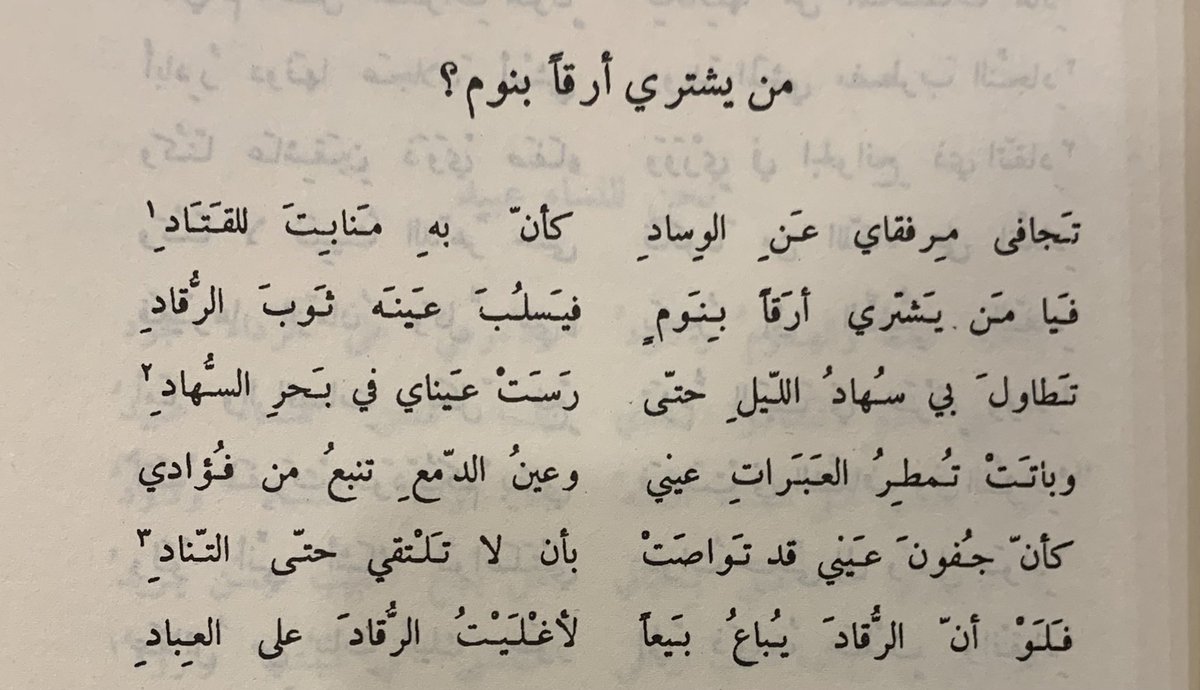 من يشتري أرقاً بنوم؟
تَجافى مِرفقاي عَنِ الوِسادِ كأنّ بهِ مَنابِتَ للقَتَادِ١
فَيا مَن يَشتَري أرَقاً بِنَومٍ فيَسلُبَ عَينَه ثَوبَ الرُّقادِ
تَطاولَ بي سُهادُ اللّيلِ حتّى رَسَتْ عَيناي في بَحرِ السُّهادِ٢
وباتَتْ تُمطِرُ العَبَراتِ عيني وعينُ الدّمعِ تنبعُ من فُؤادي
كأنّ جُفونَ عَيني قد تَواصَتْ بأن لا تَلْتقي حتّى التّنادِ٣
فَلَوْ أنّ الرُّقادَ يُباعُ بَيعاً لأغْلَيْتُ الرُّقادَ على العِبادِ